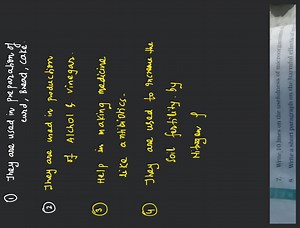 ① They are used in preparation of
curd, Bread, cake
② They are used in production
of Alchol & vinegar.
③ Help in making medicine
like antibiotics.
④ They are used to increase the
Soil fertility by
Nitrogen
7. Write 10 lines on the usefulness of microorganisms
8. Write a short paragraph on the harmful effects of